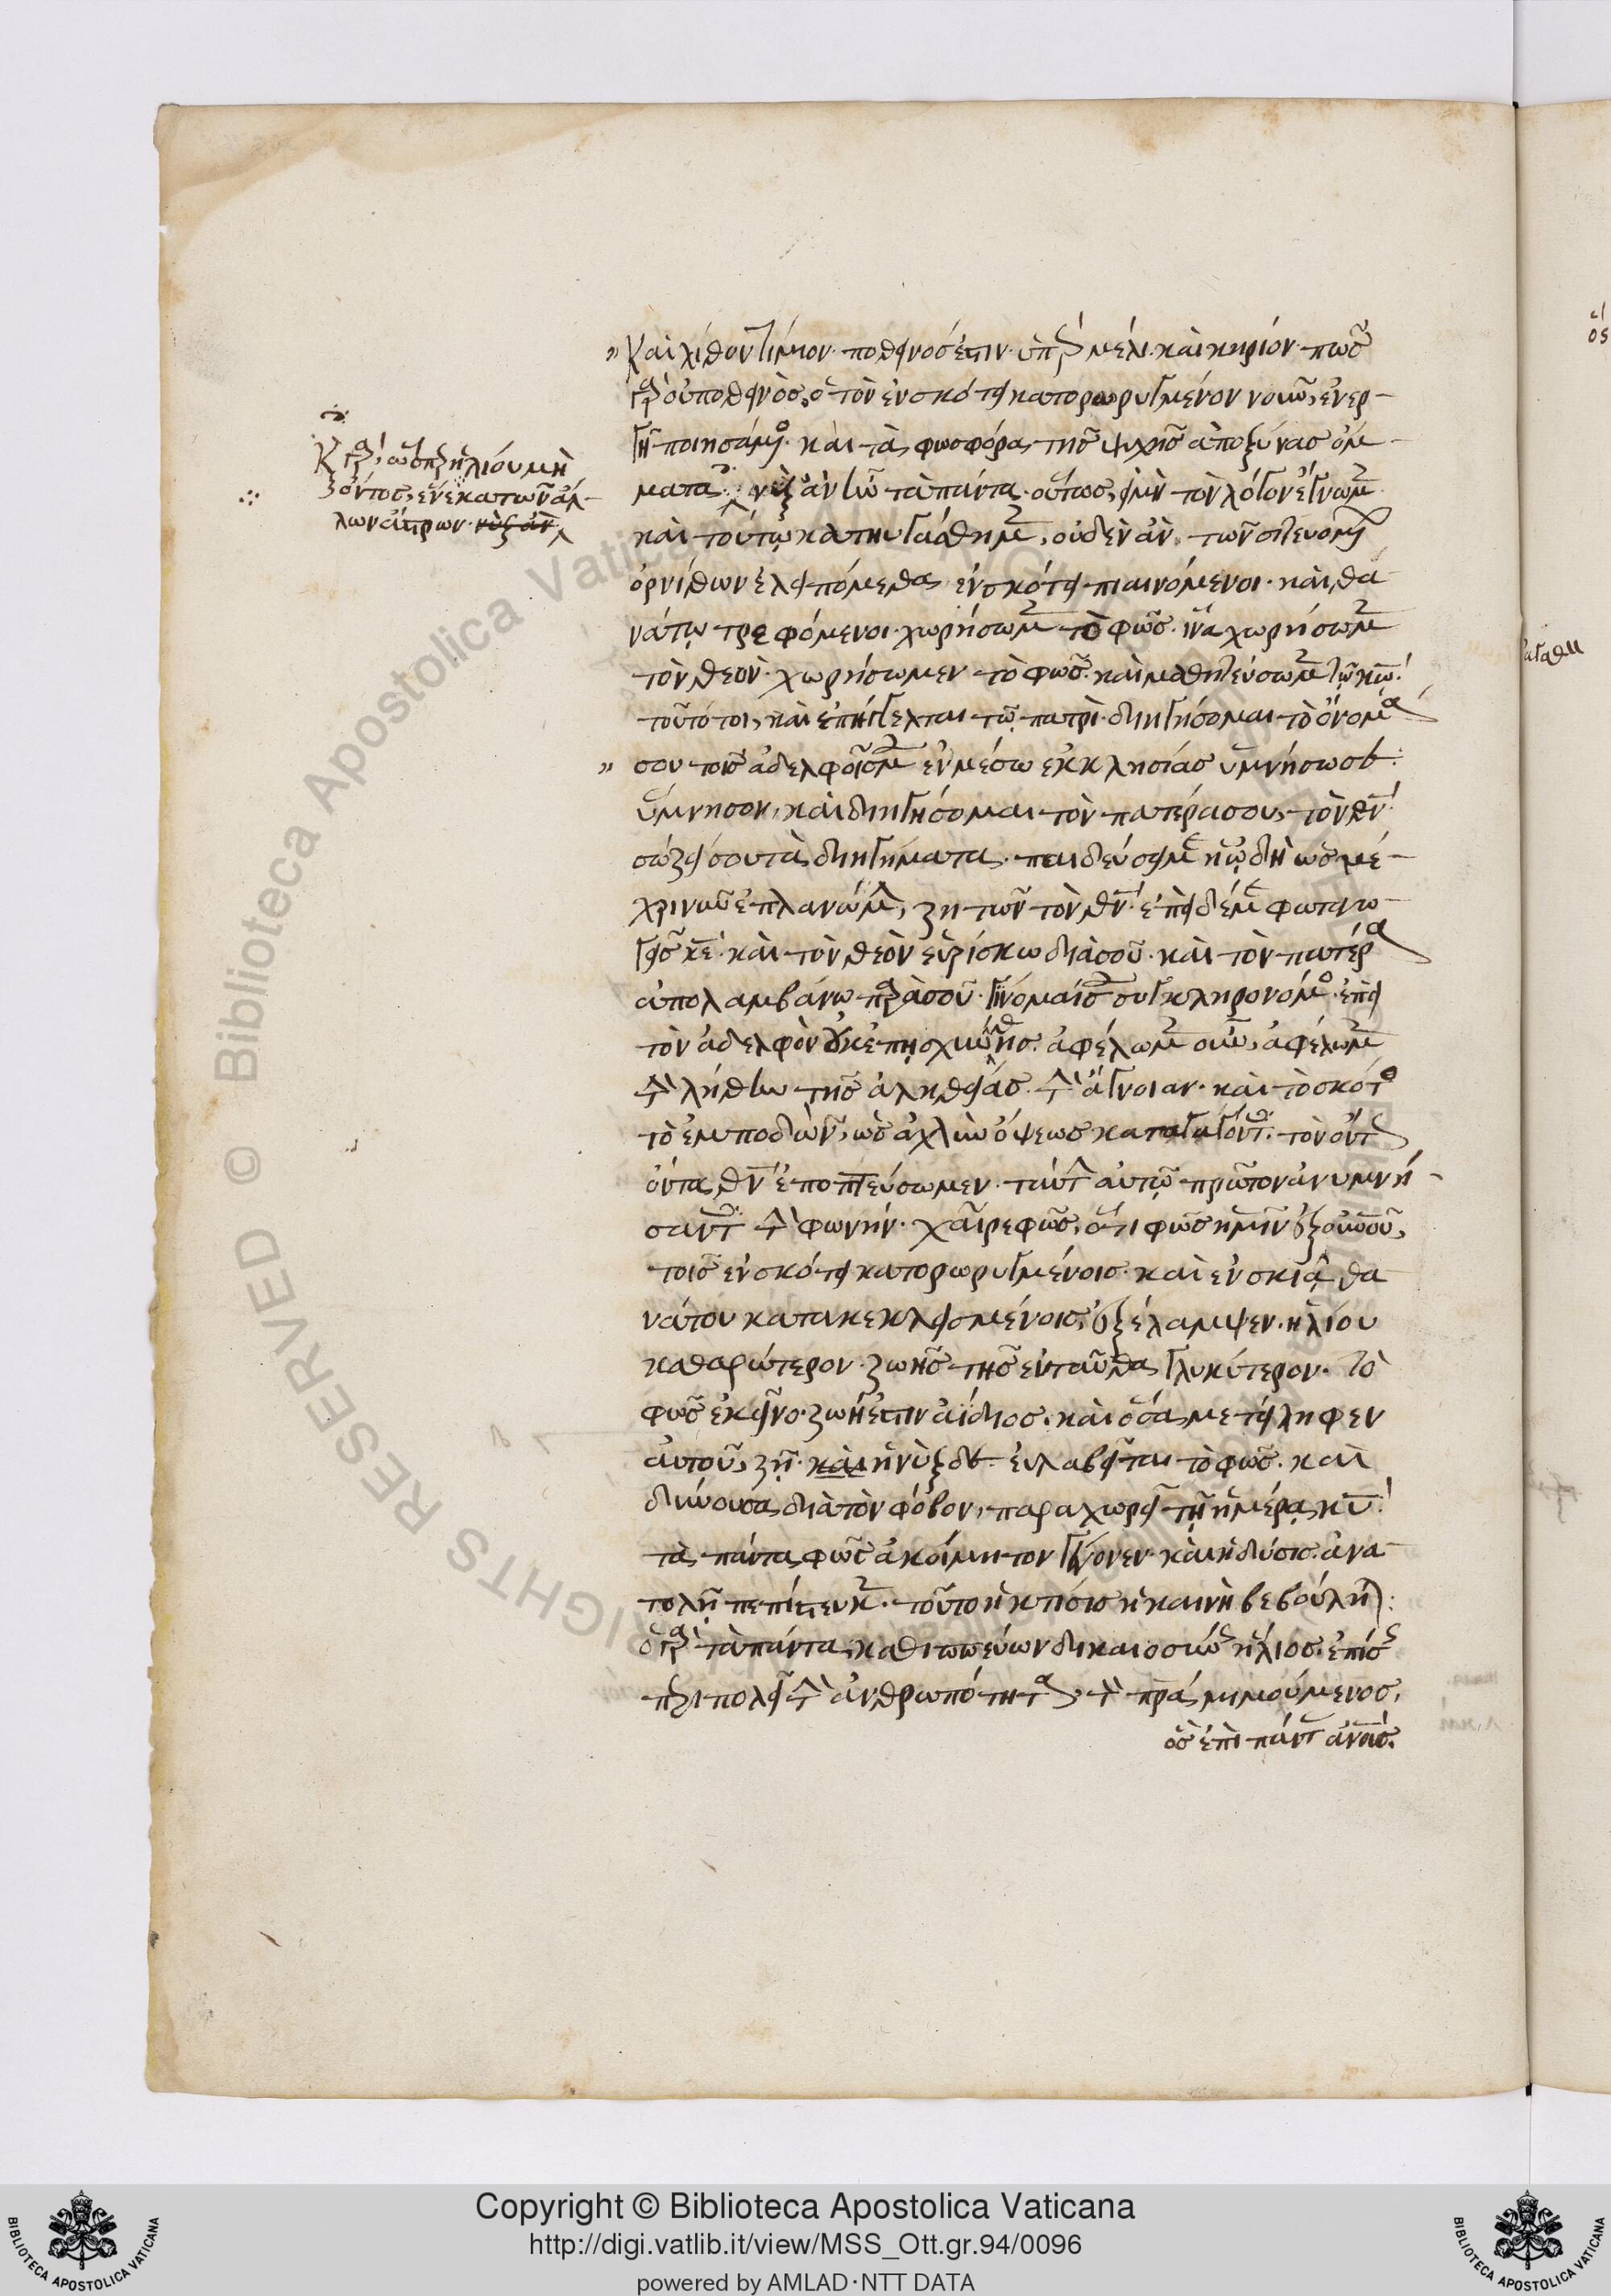 καὶ λίθον τίμιον· ποθεινός ἐστιν ὑπὲρ μέλι καὶ κηρίον· πῶς
γὰρ οὐ ποθεινὸς, ὁ τὸν ἐν σκότει κατορωρυγμένον νοῦν, ἐναρ-
γῆ ποιησάμενος· καὶ τὰ φωσφόρα τῆς ψυχῆς ἀποξύνας ὄμ-
ματα· νὺξ ἂν ἦν τὰ πάντα· οὕτως, εἰ μὴ τὸν λόγον ἔγνωμεν
καὶ τούτῳ κατηυγάσθημεν, οὐδὲν ἂν τῶν σιτευομένων
ὀρνίθων ἐλειπόμεθα ἐν σκότει πιαινόμενοι· καὶ θα-
νάτῳ τρεφόμενοι· χωρήσωμεν τὸ φῶς· ἵνα χωρήσωμεν
τὸν θεὸν· χωρήσωμεν τὸ φῶς· καὶ μαθητεύσωμεν τῷ κῳ·
τοῦτό τοι, καὶ ἐπήγγελται τῷ πατρὶ· διηγήσομαι τὸ ὄνομα
σου τοῖς ἀδελφοῖς μου· ἐν μέσω ἐκκλησίας ὑμνήσω σε:
ὕμνησον, καὶ διηγήσομαι τὸν πατέρα σου, τὸν θν·
σώζει σου τὰ διηγήματα· παιδεύσει με ἡ ᾠδὴ· ὡς μέ-
χρι νῦν ἐπλανώμην, ζητῶν τὸν θν· ἐπεὶ δέ με φωταγω-
γεῖς κε· καὶ τὸν θεὸν εὑρίσκω διὰ σοῦ· καὶ τὸν πατέρα
ἀπολαμβάνω παρὰ σοῦ· γίνομαί σου συγκληρονόμος· ἐπεὶ
τὸν ἀδελφὸν οὐκ ἐπῃσχύνθης· ἀφέλωμεν οὖν, ἀφέλωμεν
τὴν λήθην τῆς ἀληθείας· τὴν ἄγνοιαν· καὶ τὸ σκότος
τὸ ἐμποδὼν, ὡς ἀχλὺν ὄψεως καταγαγόντες· τὸν ὄντως
ὄντα θν ἐποπτεύσωμεν· ταύτην αὐτῷ πρῶτον ἀνυμνή-
σαντες τὴν φωνήν· χαῖρε φῶς, ὅτι φῶς ἡμῖν ἐξ οὐνοῦ,
τοῖς ἐν σκότει κατορωρυγμένοις· καὶ ἐν σκιᾷ θα-
νάτου κατακεκλεισμένοις, ἐξέλαμψεν· ἡλίου
καθαρώτερον· ζωῆς τῆς ἐνταῦθα γλυκύτερον· τὸ
φῶς ἐκεῖνο· ζωή ἐστιν ἀΐδιος· καὶ ὅσα μετείληφεν
αὐτοῦ, ζῇ· καὶ ἡ νὺξ δὲ εὐλαβεῖται τὸ φῶς· καὶ
δύνουσα διὰ τὸν φόβον, παραχωρεῖ τῇ ἡμέρᾳ κυ·
τὰ πάντα φῶς ἀκοίμητον γέγονεν· καὶ ἡ δύσις· ἀνα-
τολῇ πεπίστευκεν· τοῦτο ἡ κτίσις ἡ καινὴ βεβούληται:
ὁ γὰρ τὰ πάντα καθιππεύων δικαιοσύνης ἥλιος· ἐπίσης
περιπολεῖ τὴν ἀνθρωπότητα, τὸν πρα μιμούμενος,
ὃς ἐπὶ πάντας ἀνους
καὶ γὰρ, ὥσπερ ἡλίου μὴ
ὄντος, ἕνεκα τῶν ἄλ-
λων ἄστρων· νὺξ ἂν